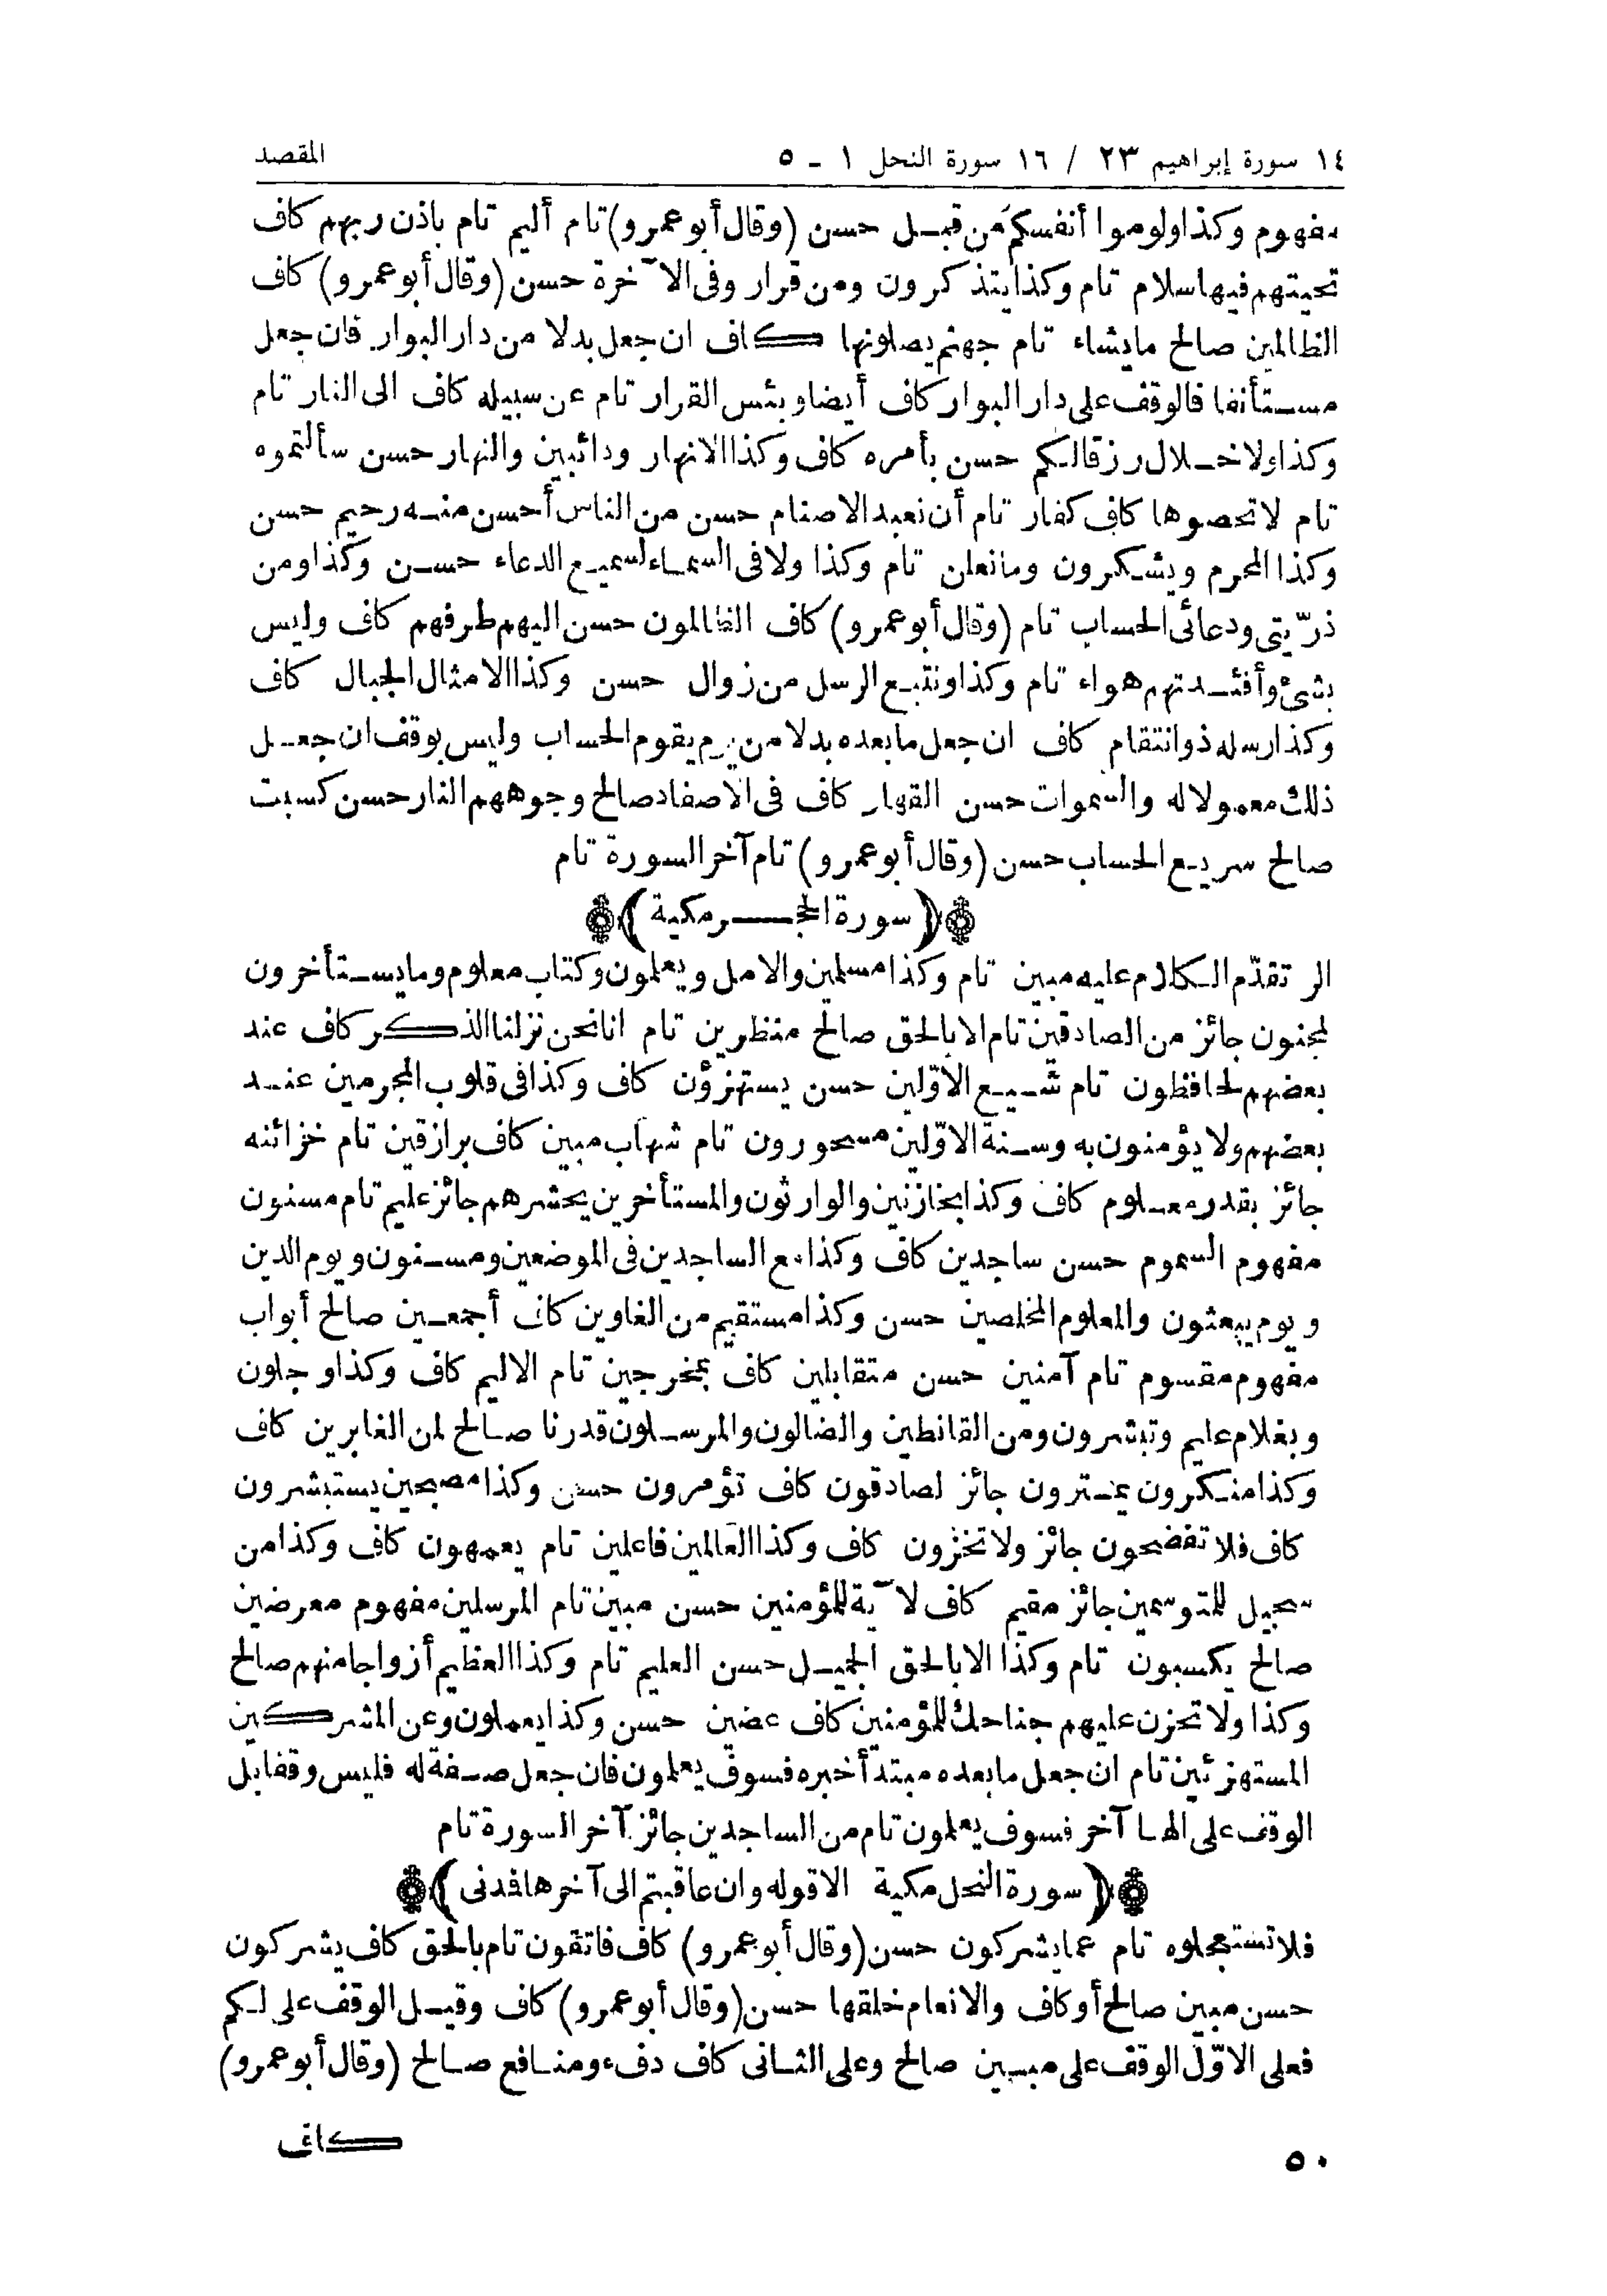 ١٤ سورة إبراهيم ٢٣ / ١٦ سورة النحل ١ - ٥ المقصد
مفهوم وكذا ولوموا أنفسكم من قبل حسن (وقال أبو عمرو) تام أليم تام باذن ربهم كاف
تحيتهم فيها سلام تام وكذا يتذكرون ومن قرار وفى الآخرة حسن (وقال أبو عمرو) كاف
الظالمين صالح ما يشاء تام جهنم يصلونها كاف ان جعل بدلا من دار البوار فان جعل
مستأنفا فالوقف على دار البوار كاف أيضا وبئس القرار تام عن سبيله كاف الى النار تام
وكذا ولا خلال رزقا لكم حسن بأمره كاف وكذا الانهار ودائبين والنهار حسن سألتموه
تام لا تحصوها كاف كفار تام أن نعبد الاصنام حسن من الناس أحسن منه رحيم حسن
وكذا المحرم ويشكرون وما نعلن تام وكذا ولا فى السماء لسميع الدعاء حسن وكذا ومن
ذرّيتى ودعائى الحساب تام (وقال أبو عمرو) كاف الظالمون حسن اليهم طرفهم كاف وليس
بشئ وأفئدتهم هواء تام وكذا ونتبع الرسل من زوال حسن وكذا الامثال الجبال كاف
وكذا رسله ذو انتقام كاف ان جعل ما بعده بدلا من يوم يقوم الحساب وليس بوقف ان جعل
ذلك معمولا له والسموات حسن القهار كاف فى الاصفاد صالح وجوههم النار حسن كسبت
صالح سريع الحساب حسن (وقال أبو عمرو) تام آخر السورة تام
(سورة الحجر مكية)
الر تقدّم الكلام عليه مبين تام وكذا مسلمين والامل ويعلمون وكتاب معلوم وما يستأخرون
لمجنون جائز من الصادقين تام الا بالحق صالح منظرين تام انا نحن نزلنا الذكر كاف عند
بعضهم لحافظون تام شيع الاوّلين حسن يستهزؤن كاف وكذا فى قلوب المجرمين عند
بعضهم ولا يؤمنون به وسنة الاوّلين مسحورون تام شهاب مبين كاف برازقين تام خزائنه
جائز بقدر معلوم كاف وكذا بخازنين والوارثون والمستأخرين يحشرهم جائز عليم تام مسنون
مفهوم السموم حسن ساجدين كاف وكذا مع الساجدين فى الموضعين ومسنون ويوم الدين
ويوم يبعثون والمعلوم المخلصين حسن وكذا مستقيم من الغاوين كاف أجمعين صالح أبواب
مفهوم مقسوم تام آمنين حسن متقابلين كاف بمخرجين تام الاليم كاف وكذا وجلون
وبغلام عليم وتبشرون ومن القانطين والضالون والمرسلون قدرنا صالح لمن الغابرين كاف
وكذا منكرون يمترون جائز لصادقون كاف تؤمرون حسن وكذا مصبحين يستبشرون
كاف فلا تفضحون جائز ولا تخزون كاف وكذا العالمين فاعلين تام يعمهون كاف وكذا من
سجيل للمتوسمين جائز مقيم كاف لآية للمؤمنين حسن مبين تام المرسلين مفهوم معرضين
صالح يكسبون تام وكذا الا بالحق الجميل حسن العليم تام وكذا العظيم أزواجا منهم صالح
وكذا ولا تحزن عليهم جناحك للمؤمنين كاف عضين حسن وكذا يعملون وعن المشركين
المستهزئين تام ان جعل ما بعده مبتدأ خبره فسوف يعلمون فان جعل صفة له فليس وقفا بل
الوقف على الها آخر فسوف يعلمون تام من الساجدين جائز آخر السورة تام
(سورة النحل مكية الا قوله وان عاقبتم الى آخرها فمدنى)
فلا تستعجلوه تام عما يشركون حسن (وقال أبو عمرو) كاف فاتقون تام بالحق كاف يشركون
حسن مبين صالح أو كاف والانعام خلقها حسن (وقال أبو عمرو) كاف وقيل الوقف على لكم
فعلى الاوّل الوقف على مبين صالح وعلى الثانى كاف دفء ومنافع صالح (وقال أبو عمرو)
كاف
٥٠